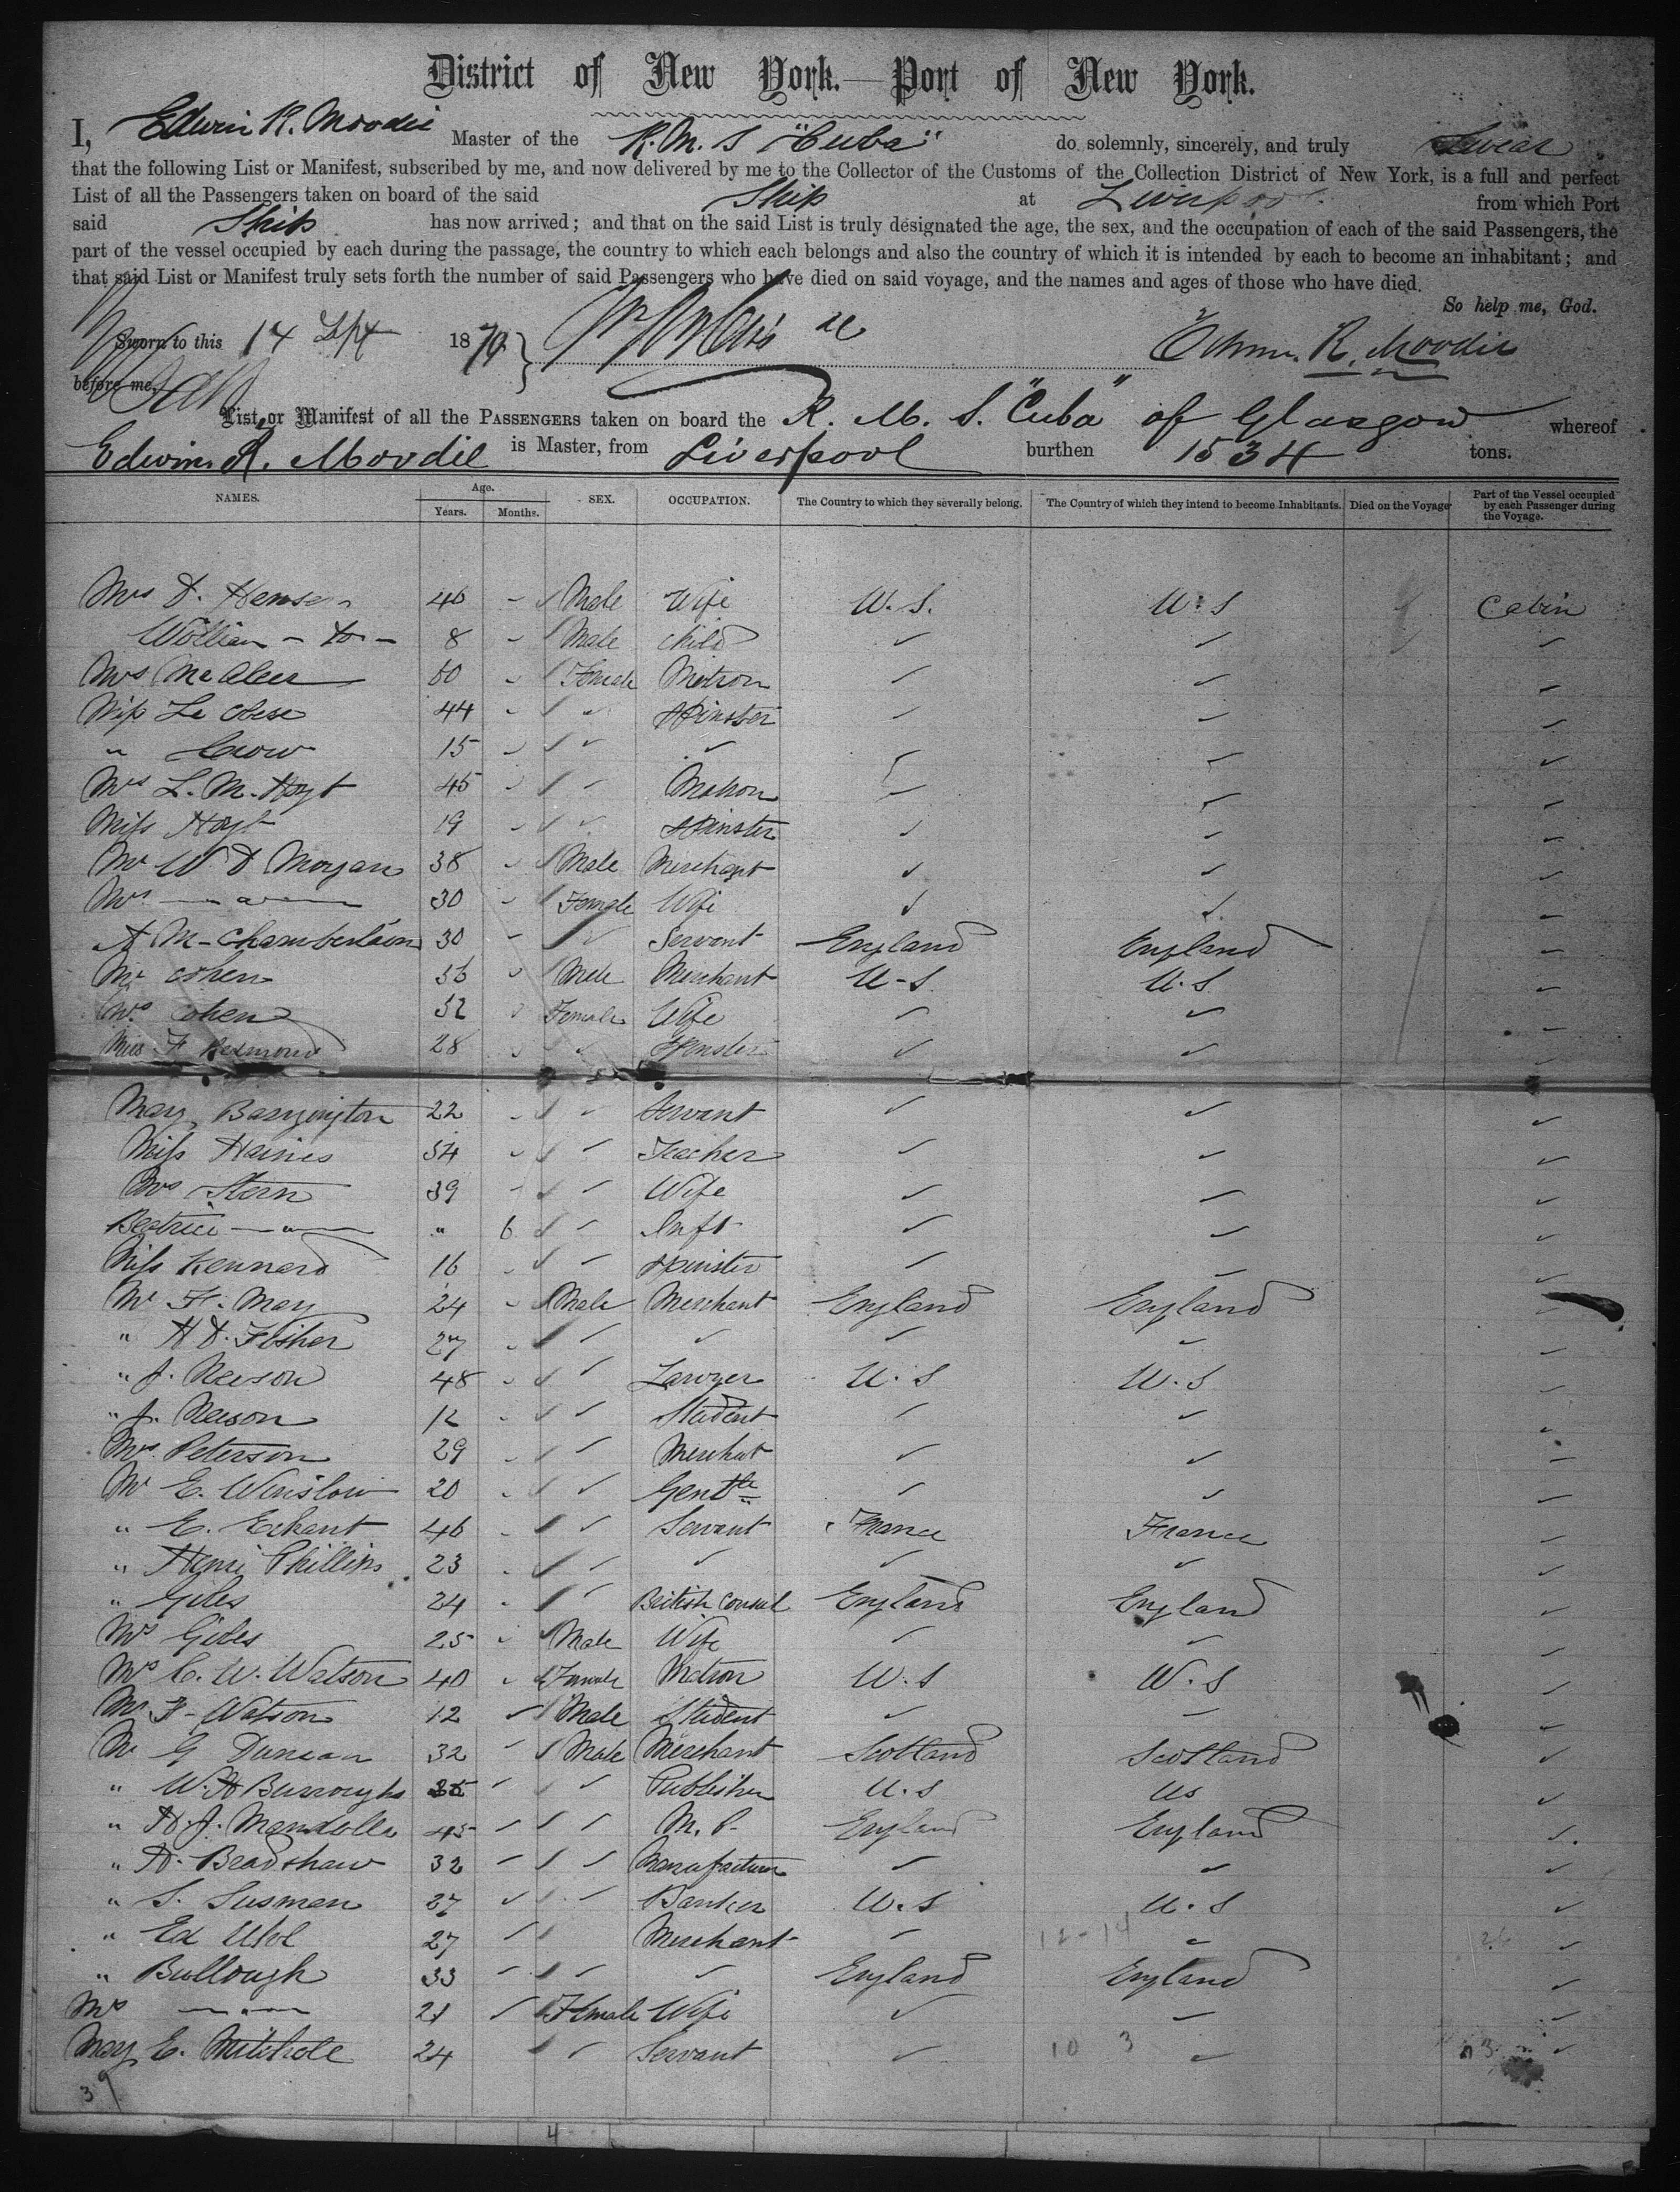 District of New York.—Port of New York.
I, Edwin R. Moodie Master of the R. M. S "Cuba" do solemnly, sincerely, and truly Swear
that the following List or Manifest, subscribed by me, and now delivered by me to the Collector of the Customs of the Collection District of New York, is a full and perfect
List of all the Passengers taken on board of the said Ship at Liverpool from which Port
said Ship has now arrived; and that on the said List is truly designated the age, the sex, and the occupation of each of the said Passengers, the
part of the vessel occupied by each during the passage, the country to which each belongs and also the country of which it is intended by each to become an inhabitant; and
that said List or Manifest truly sets forth the number of said Passengers who have died on said voyage, and the names and ages of those who have died.
So help me, God.
Sworn to this 14 Sept 1870 } Edwin. R. Moodie
before me,
List or Manifest of all the PASSENGERS taken on board the R. M. S. "Cuba" of Glasgow whereof
Edwin. R. Moodie is Master, from Liverpool burthen 1534 tons.
NAMES. Age. SEX. OCCUPATION. The Country to which they severally belong. The Country of which they intend to become Inhabitants. Died on the Voyage Part of the Vessel occupied by each Passenger during the Voyage.
Years. Months.
Mrs D. Hansen 46 - Male Wife U. S. U. S Cabin
William - do - 8 - Male child ✓ ✓ ✓
Mrs McAleer 60 - Female Matron ✓ ✓ ✓
Miss Le 44 - " Spinster ✓ ✓ ✓
" Crow 15 - ✓ ✓ ✓ ✓ ✓
Mrs L. M. Hoyt 45 - ✓ Matron ✓ ✓ ✓
Miss Hoyt 19 - ✓ Spinster ✓ ✓ ✓
Mr W. D Morgan 38 - Male Merchant ✓ ✓ ✓
Mrs — " — 30 - Female Wife ✓ ✓ ✓
A M - Chamberlain 30 - ✓ Servant England England ✓
Mr Cohen 36 - Male Merchant U - S U. S ✓
Mrs Cohen 32 Female Wife ✓ ✓ ✓
Miss F Redmond 28 ✓ Spinster ✓ ✓ ✓
Mary Barrington 22 - ✓ Servant ✓ ✓ ✓
Miss Haines 34 - ✓ Teacher ✓ ✓ ✓
Mrs Stern 39 - ✓ Wife ✓ ✓ ✓
Beatrice — " — " 6 ✓ Inft ✓ ✓ ✓
Miss Kennard 16 - ✓ Spinster ✓ ✓ ✓
Mr F. May 24 - Male Merchant England England ✓
" H D. Fisher 27 - ✓ ✓ ✓ ✓ ✓
" J. Neeson 48 - ✓ Lawyer U. S U. S ✓
" J. Neeson 12 - ✓ Student ✓ ✓ ✓
Mr Peterson 29 - ✓ Merchat ✓ ✓ ✓
Mr E. Winslow 20 - ✓ Gentle ✓ ✓ ✓
" E. Eckant 46 - ✓ Servant France France ✓
" Henri Phillips 23 - ✓ ✓ ✓ ✓ ✓
" Giles 24 - ✓ British Consul England England ✓
Mrs Giles 25 - Male Wife ✓ ✓ ✓
Mrs C. W. Watson 40 - Female Matron U. S U. S ✓
Mr F - Watson 12 - Male Student ✓ ✓ ✓
Mr G Duncan 32 - Male Merchant Scotland Scotland ✓
" W. H Burroughs 35 - ✓ Publisher U. S US ✓
" H. J. Mandolla 45 - ✓ M. P. England England ✓
" H. Bradshaw 32 - ✓ Manufacturer ✓ ✓ ✓
" S. Susman 27 - ✓ Banker U. S U. S ✓
" Ed Uhl 27 - Merchant ✓ 12-14 ✓ ✓
" Bullough 33 - ✓ ✓ England England ✓
Mrs — " — 21 - Female Wife ✓ ✓ ✓
Mary E. 24 ✓ Servant ✓ 10 3 ✓ ✓
39
4